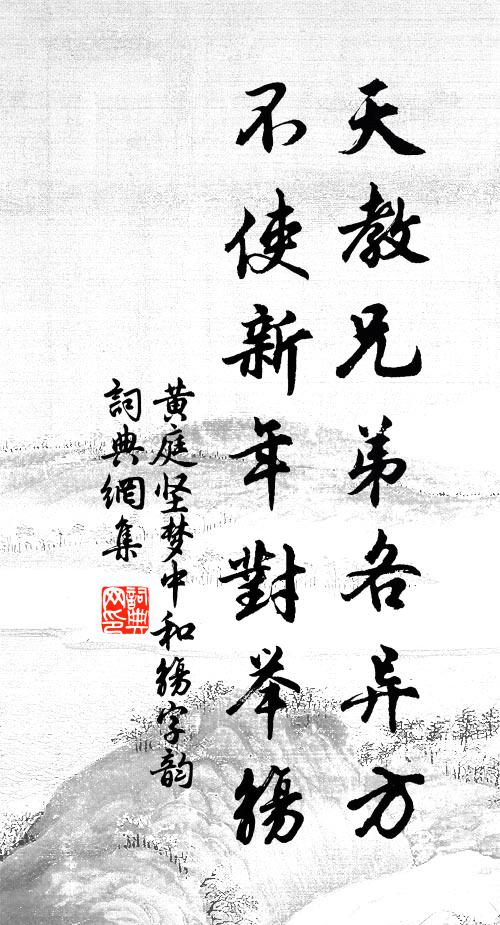 天教兄弟各异方
不使新年對举觴
黄庭坚梦中和觴字韵
詞典網集
詞典
网印